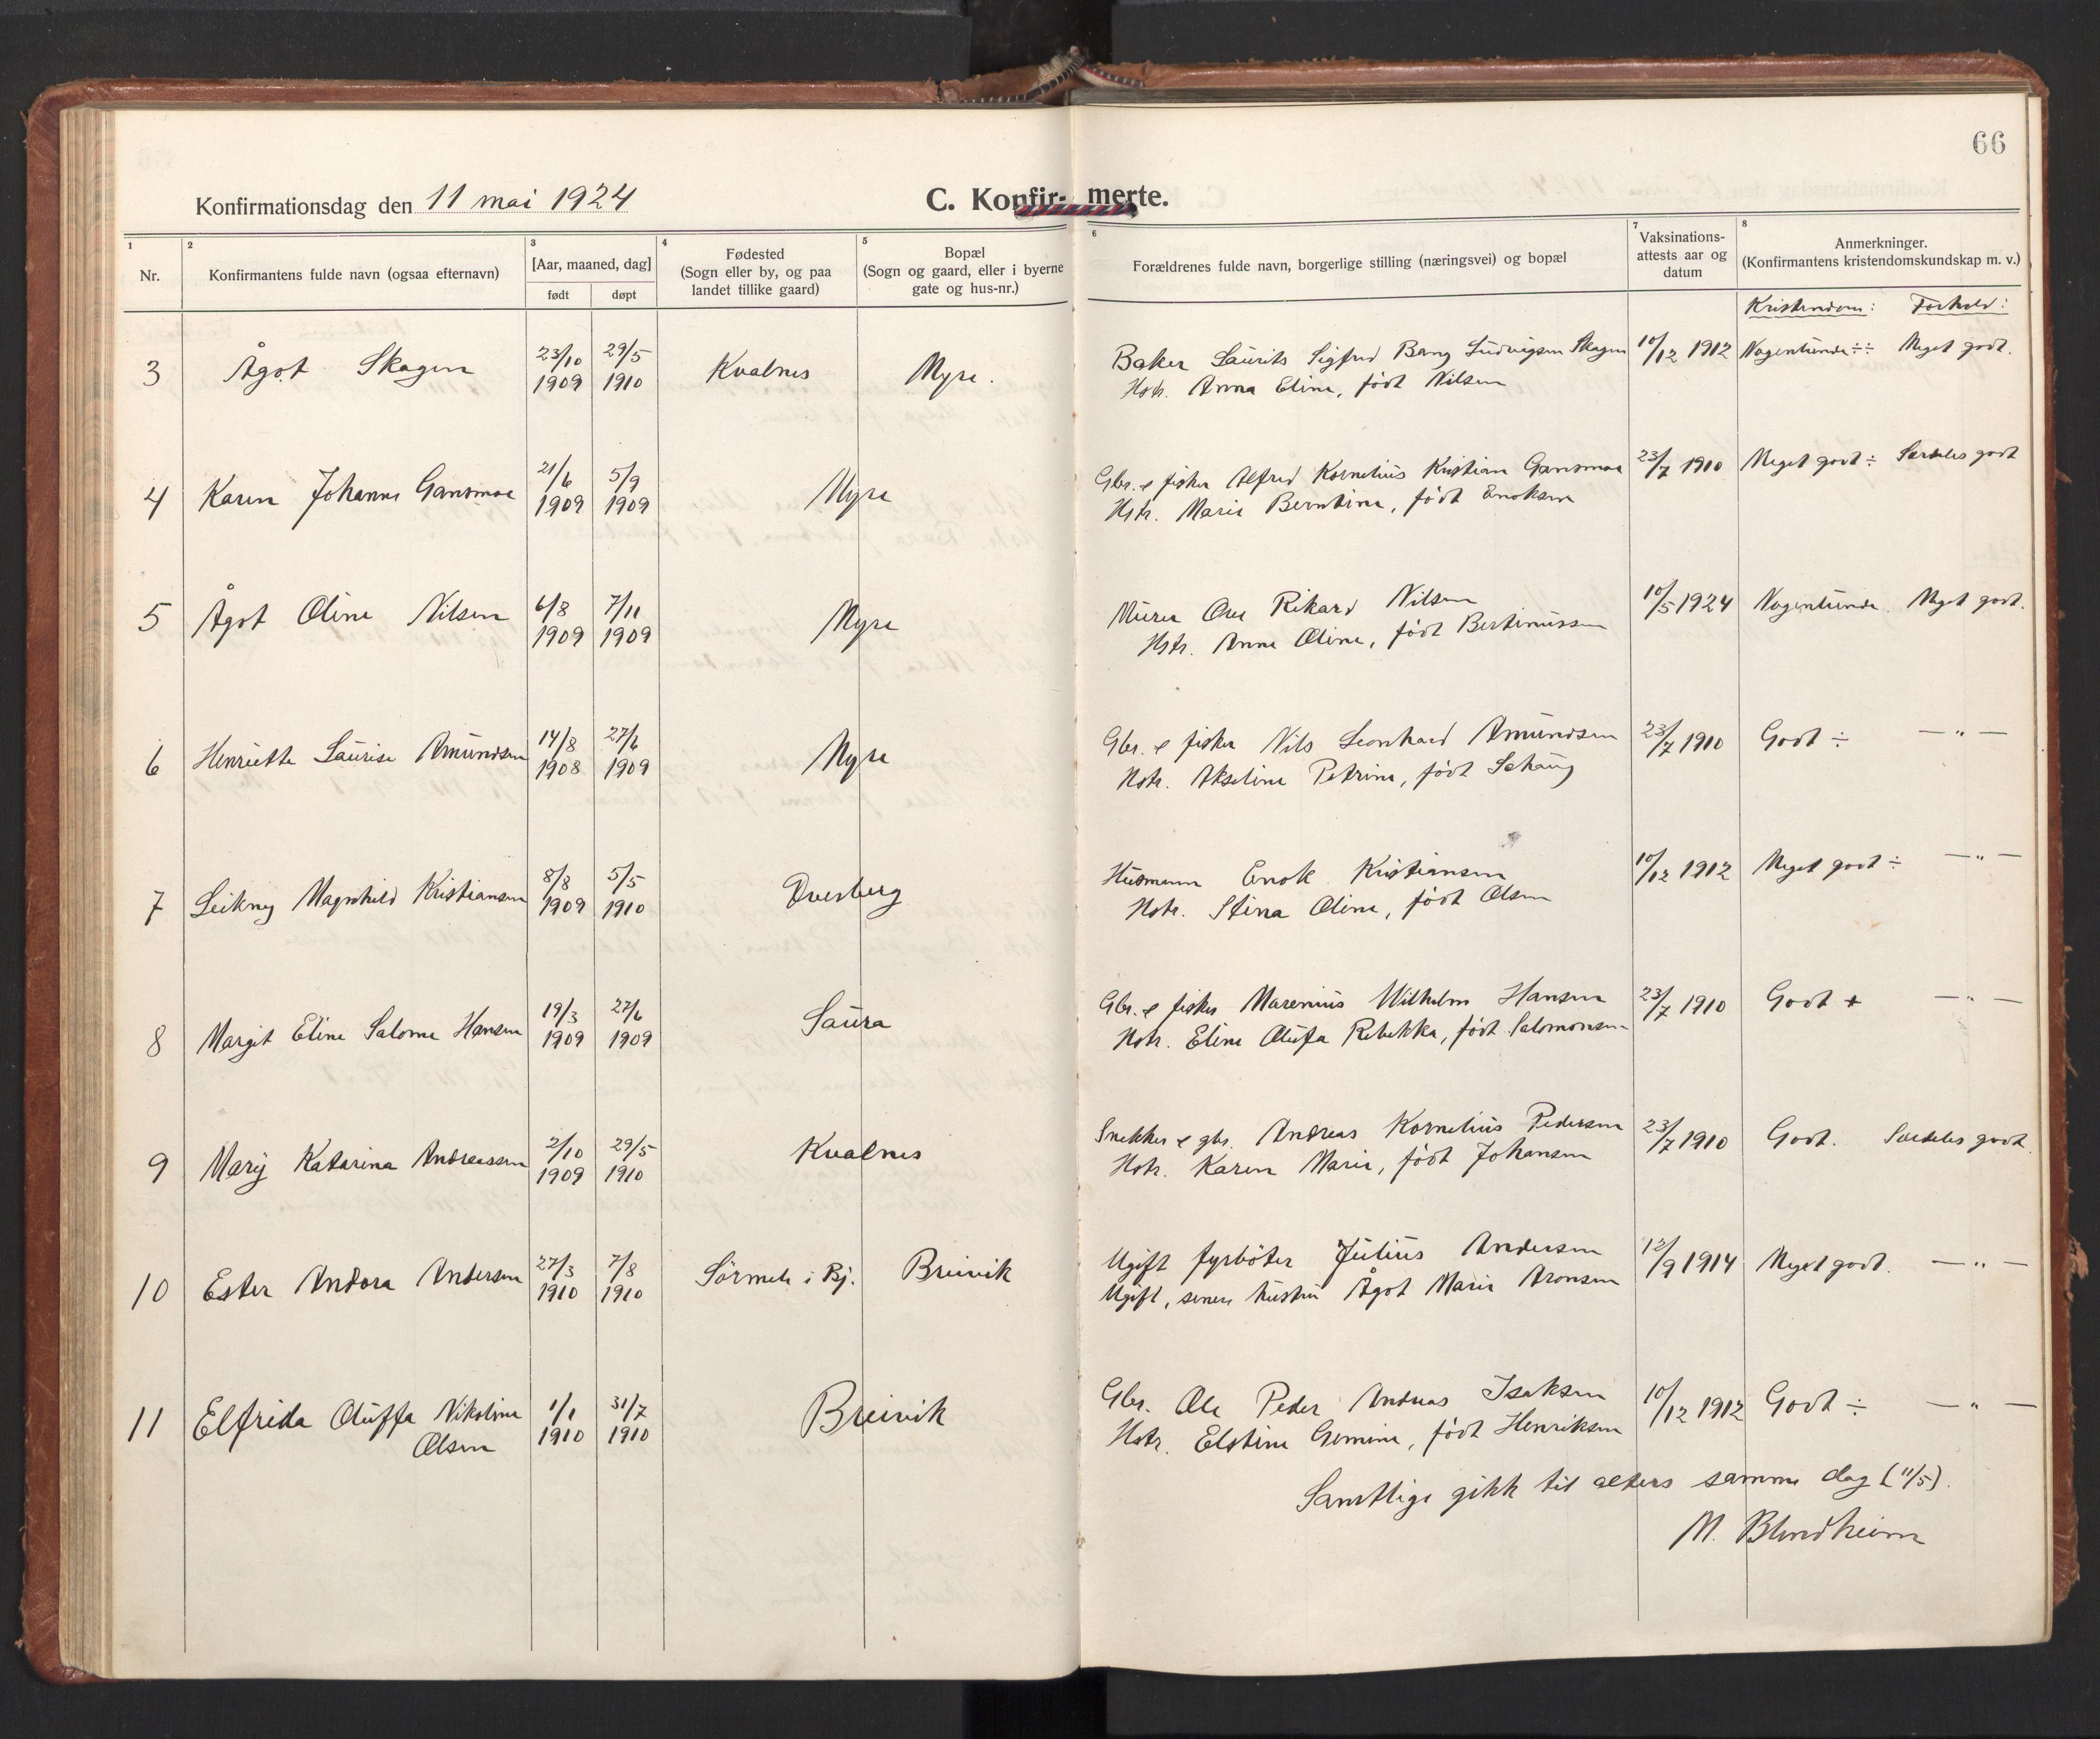 66
Konfirmationsdag den 11 mai 1924
C. Konfir- merte.
1 2 3 4 5 6 7 8
Nr.
Konfirmantens fulde navn (ogsaa efternavn)
[Aar, maaned, dag]
født døpt
Fødested
(Sogn eller by, og paa
landet tillike gaard)
Bopæl
(Sogn og gaard, eller i byerne
gate og hus-nr.)
Forældrenes fulde navn, borgerlige stilling (næringsvei) og bopæl
Vaksinations-
attests aar og
datum
Anmerkninger.
(Konfirmantens kristendomskundskap m. v.)
Kristendom: Forhold:
3 Ågot Skagen 23/10 1909 29/5 1910 Kvalnes Myre. Baker Laurits Sigfred Bang Ludvigsen Skagen 10/12 1912 Nogenlunde ÷÷ Meget godt.
Hstr. Anna Eline, född Nilsen
4 Karen Johanne Gansmoe 21/6 1909 5/9 1909 Myre Gbr. & fisker Alfred Kornelius Kristian Gansmoe 23/7 1910 Meget godt ÷ Særdeles godt
Hstr. Marie Berntine, född Enoksen
5 Ågot Oline Nilsen 6/8 1909 7/11 1909 Myre Murer Ole Rikard Nilsen 10/5 1924 Nogenlunde. Meget godt.
Hstr. Anne Oline, född Bertinussen
6 Henriette Laurise Amundsen 14/8 1908 27/6 1909 Myre Gbr. & fisker Nils Leonhard Amundsen 23/7 1910 Godt ÷ — " —
Hstr. Akseline Petrine, född Sehaug
7 Leikny Magnhild Kristiansen 8/8 1909 5/5 1910 Dverberg Husmann Enok Kristiansen 10/12 1912 Meget godt ÷ — " —
Hstr. Stina Oline, född Olsen
8 Margit Eline Salome Hansen 19/3 1909 27/6 1909 Saura Gbr. & fisker Marenius Wilhelm Hansen 23/7 1910 Godt + — " —
Hstr. Eline Olufa Rebekka, född Salomonsen
9 Mary Katarina Andreassen 2/10 1909 29/5 1910 Kvalnes Snekker & gbr. Andreas Kornelius Pedersen 23/7 1910 Godt. Særdeles godt.
Hstr. Karen Marie, född Johansen
10 Ester Andora Andersen 27/3 1910 7/8 1910 Sörmele i Bj. Breivik Ugift fyrböter Julius Andersen 12/9 1914 Meget godt. — " —
Ugift, senere hustru Ågot Marie Aronsen
11 Elfrida Oluffa Nikoline 1/1 1910 31/7 1910 Breivik Gbr. Ole Peder Andreas Isaksen 10/12 1912 Godt ÷ — " —
Olsen Hstr. Elstine Gemine, född Henriksen
Samtlige gikk til alters samme dag (11/5).
M. Blindheim